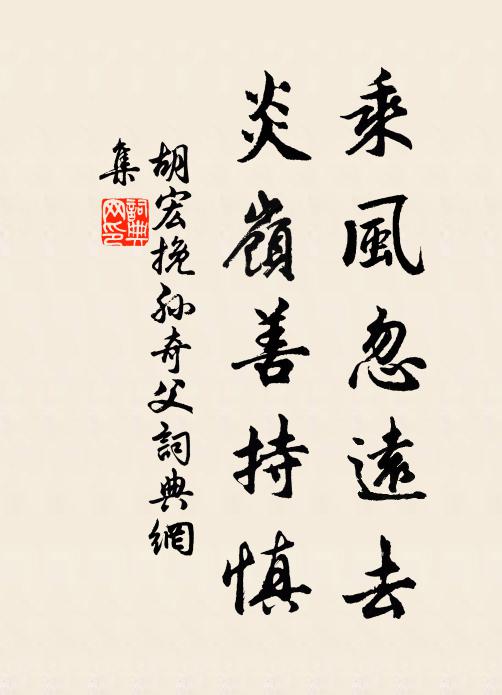 乘風忽遠去
炎嶺善持慎
胡宏挽孫奇父詞典網
集
詞典網印